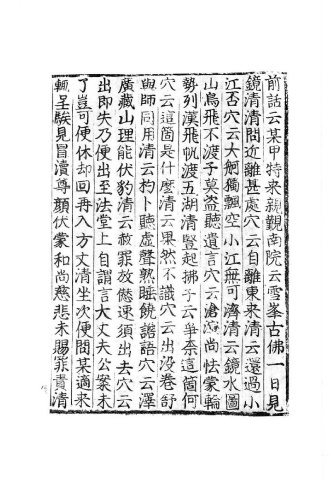 前話云某甲特来親覲南院云雪峯古佛一日見
鏡清清問近離甚處穴云自離東来清云還過小
江否穴云大舸獨飄空小江無可濟清云鏡水圖
山鳥飛不渡子莫盗聽遺言穴云滄溟尚怯蒙輪
勢列漢飛帆渡五湖清竪起拂子云爭奈這箇何
穴云這箇是什麼清云果然不識穴云出没卷舒
與師同用清云杓卜聽虚聲熟睡饒譫語穴云澤
廣藏山理能伏豹清云赦罪放愆速須出去穴云
出即失乃便出至法堂上自謂言大丈夫公案未
了豈可便休却回再入方丈清坐次便問某適来
輙呈騃見冒瀆尊顔伏蒙和尚慈悲未賜罪責清